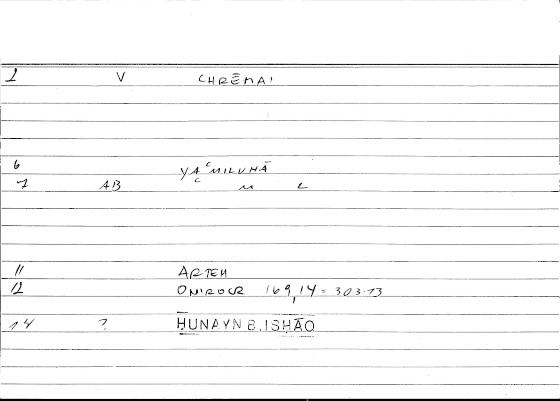 1 V CHRĒMAI
6 YAʿMILUHĀ
7 AB M L
11 ARTEM
12 ONIROCR 169,14 = 303.13
14 ? HUNAYN B. ISHĀO